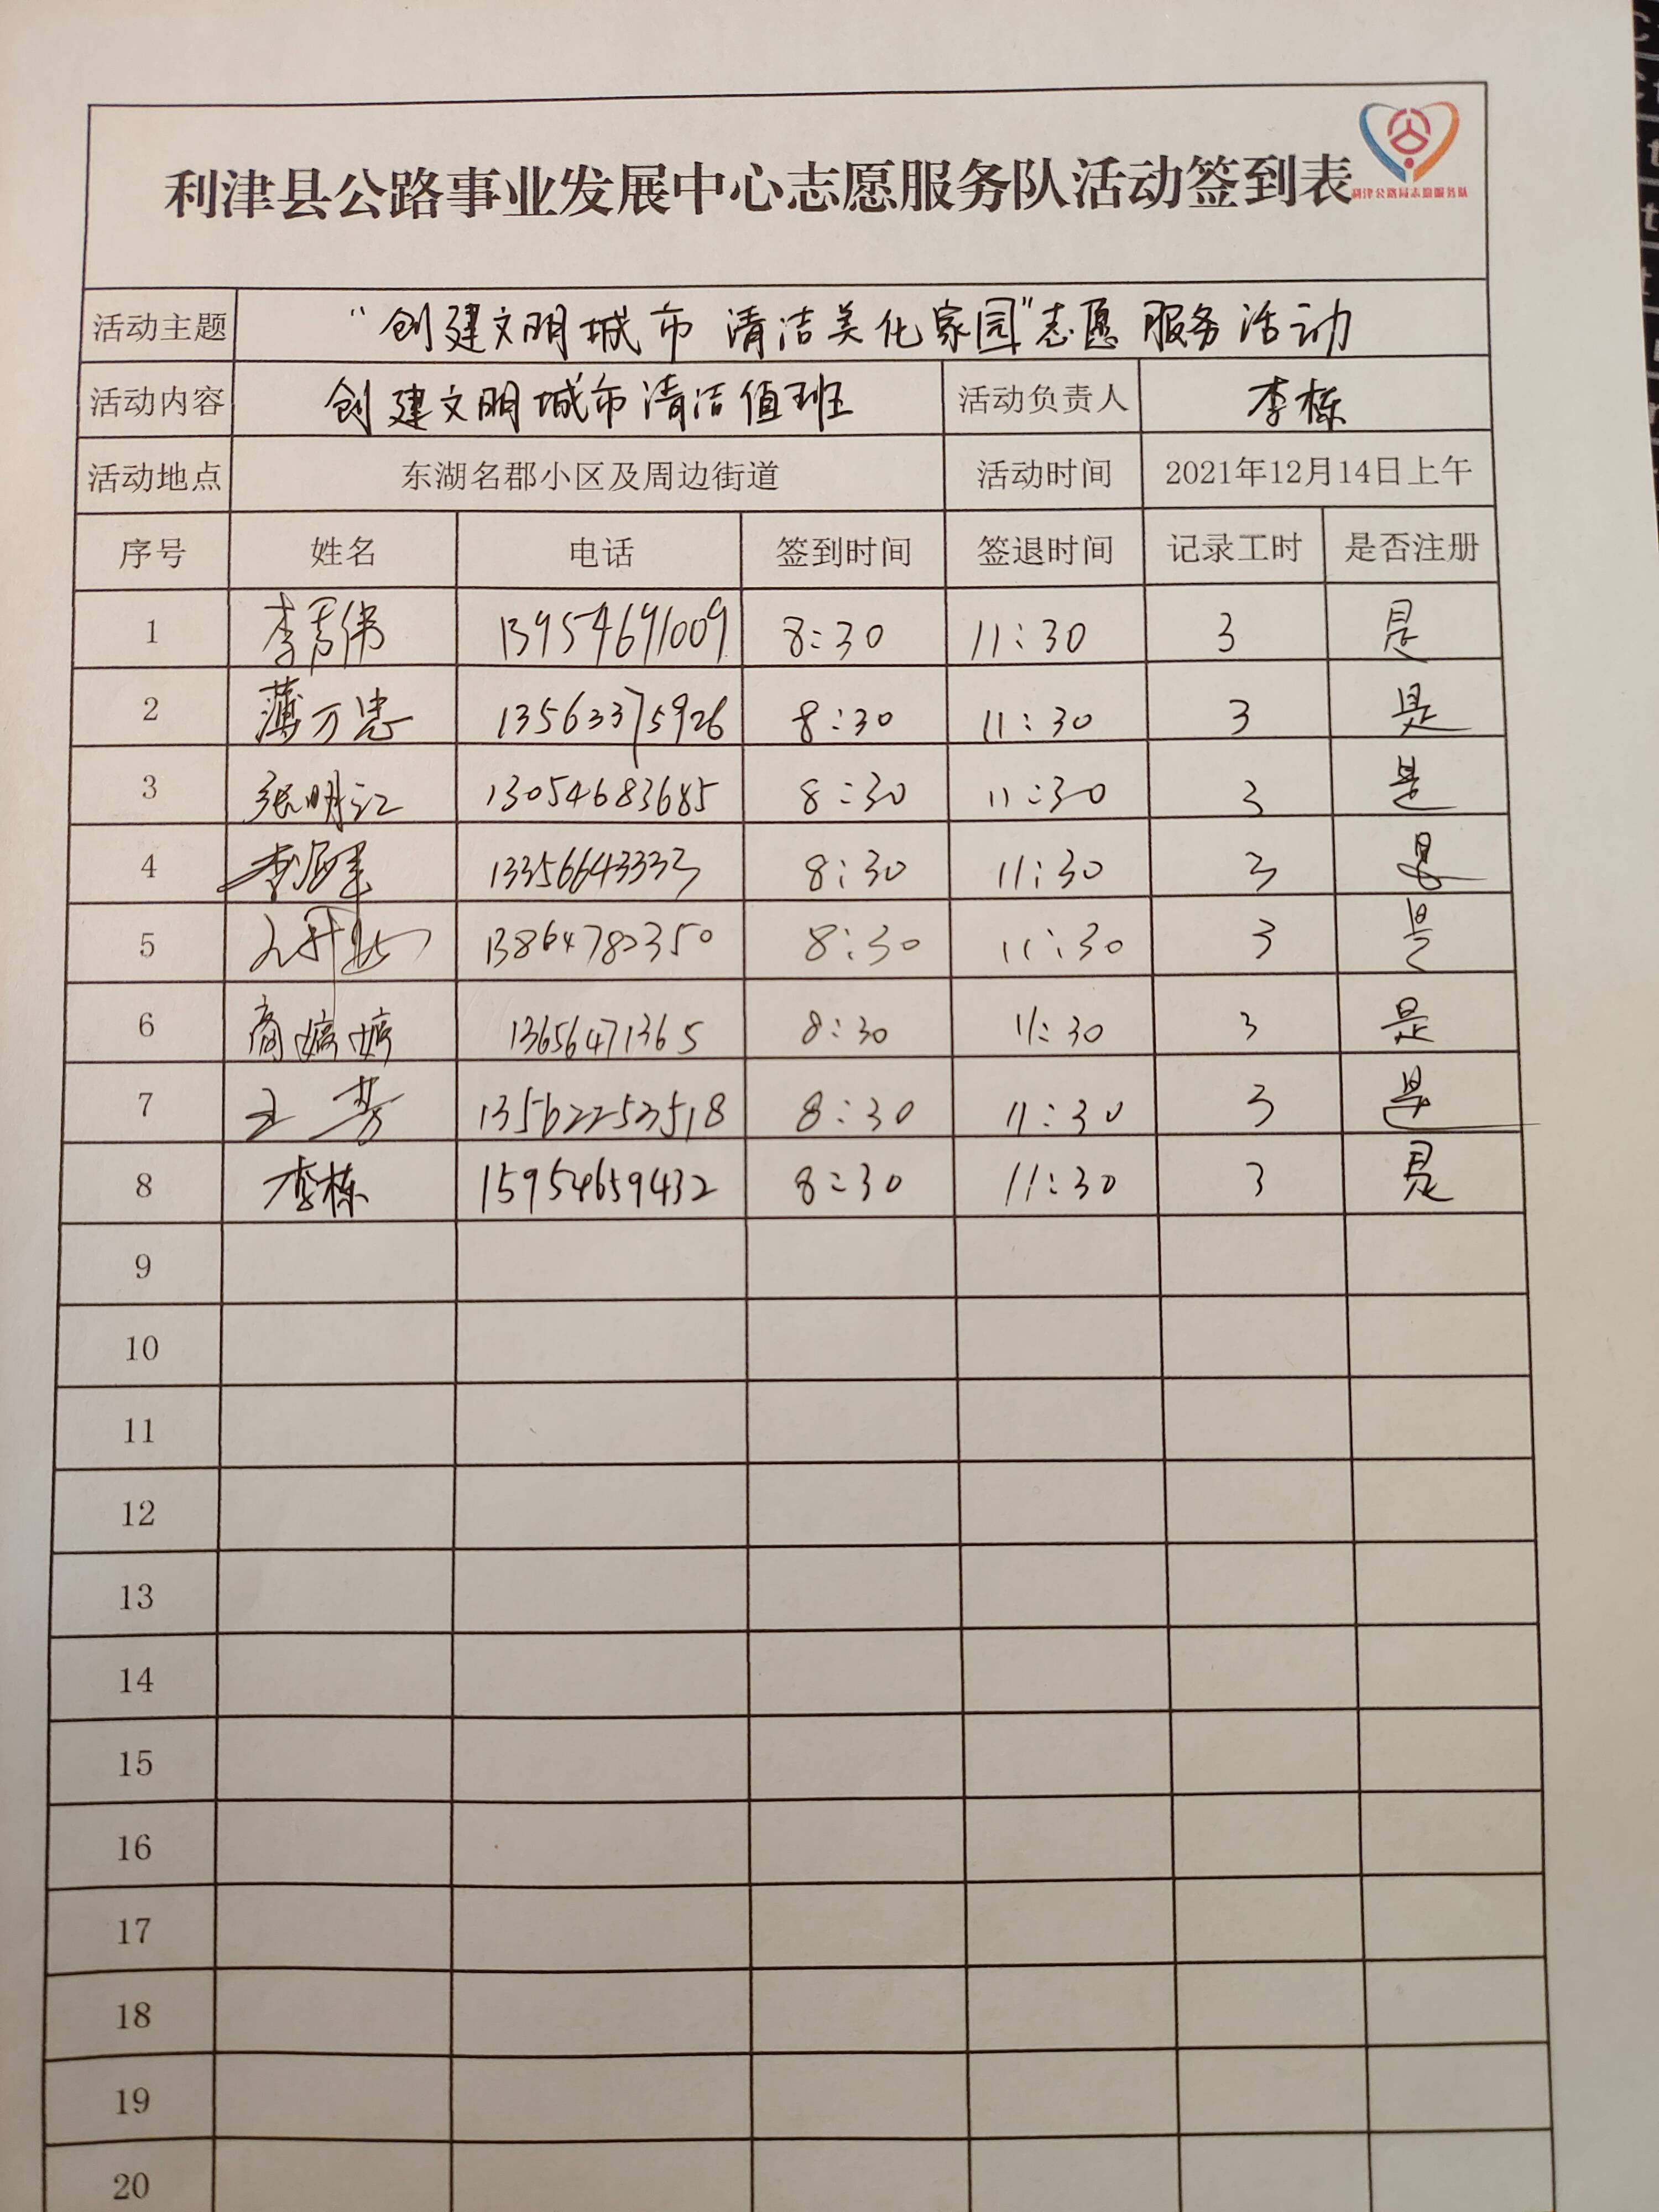 利津县公路事业发展中心志愿服务队活动签到表
利津公路局志愿服务队
活动主题 “创建文明城市 清洁美化家园”志愿服务活动
活动内容 创建文明城市清洁值班 活动负责人 李栋
活动地点 东湖名郡小区及周边街道 活动时间 2021年12月14日上午
序号 姓名 电话 签到时间 签退时间 记录工时 是否注册
1 13954691009 8:30 11:30 3 是
2 薄万忠 13563375926 8:30 11:30 3 是
3 张明江 13054683685 8:30 11:30 3 是
4 13356643333 8:30 11:30 3 是
5 8:30 11:30 3 是
6 商婷婷 13656471365 8:30 11:30 3 是
7 王芳 8:30 11:30 3 是
8 李栋 15954659432 8:30 11:30 3 是
9
10
11
12
13
14
15
16
17
18
19
20